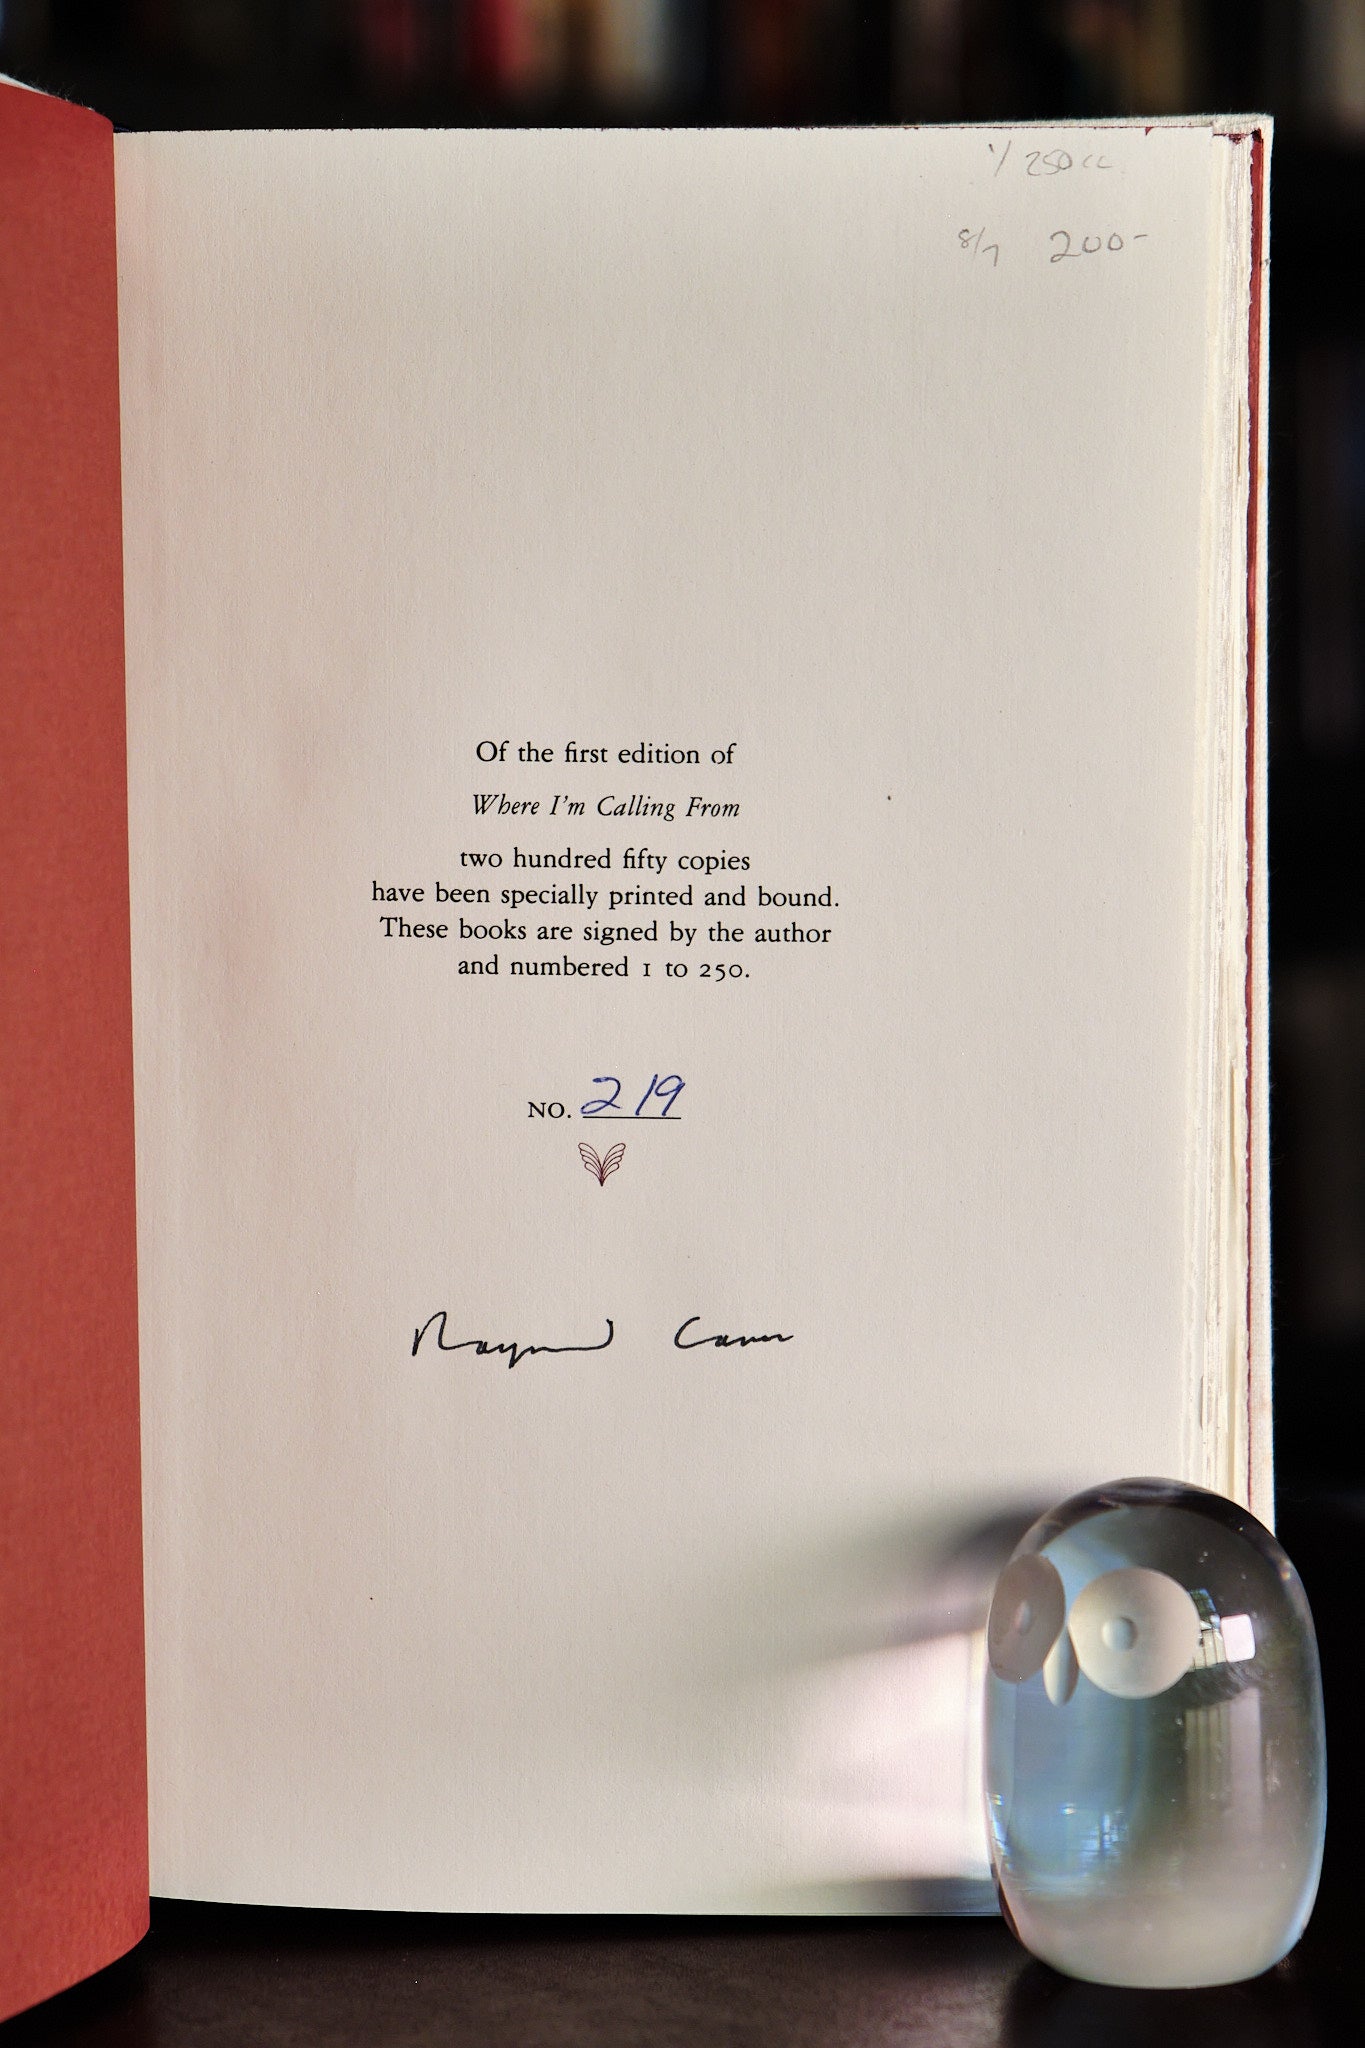 1/250 cc
8/7 200-
Of the first edition of
Where I'm Calling From
two hundred fifty copies
have been specially printed and bound.
These books are signed by the author
and numbered 1 to 250.
NO. 219
Raymond Carver